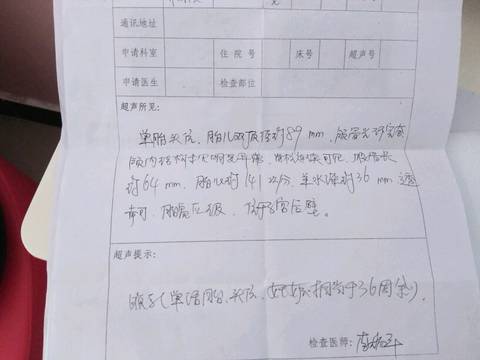 通讯地址
申请科室 住院号 床号 超声号
申请医生 检查部位
超声所见:
单胎头位,胎儿双顶径约89mm,颅骨光环完整
颅内结构未见明显异常,脊柱连续可见,股骨长
约64mm,胎心约141次/分,羊水深约36mm透
声可,胎盘Ⅱ级,位于子宫后壁。
超声提示:
晚孕(单活胎、头位、妊娠相当于36周余)。
检查医师: